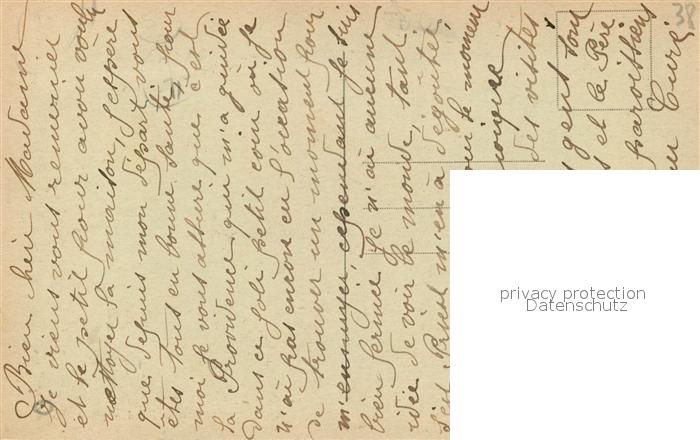 Bien chère Madame
Je viens vous remercier
et le petit pour avoir voulu
nettoyer la maison, j'espère
que depuis mon départ vous
êtes tous en bonne santé, pour
moi je vous assure que c'est
la Providence qui m'a guidée
dans ce joli petit coin où je
n'ai pas encore eu l'occasion
de trouver un moment pour
m'ennuyer, cependant je suis
bien fermée je n'ai aucune
idée de voir le monde, tant
m'en a dégoûté
pour le moment
des visites
gent tout
et le Père
paroissiens
Curé
38
privacy protection
Datenschutz